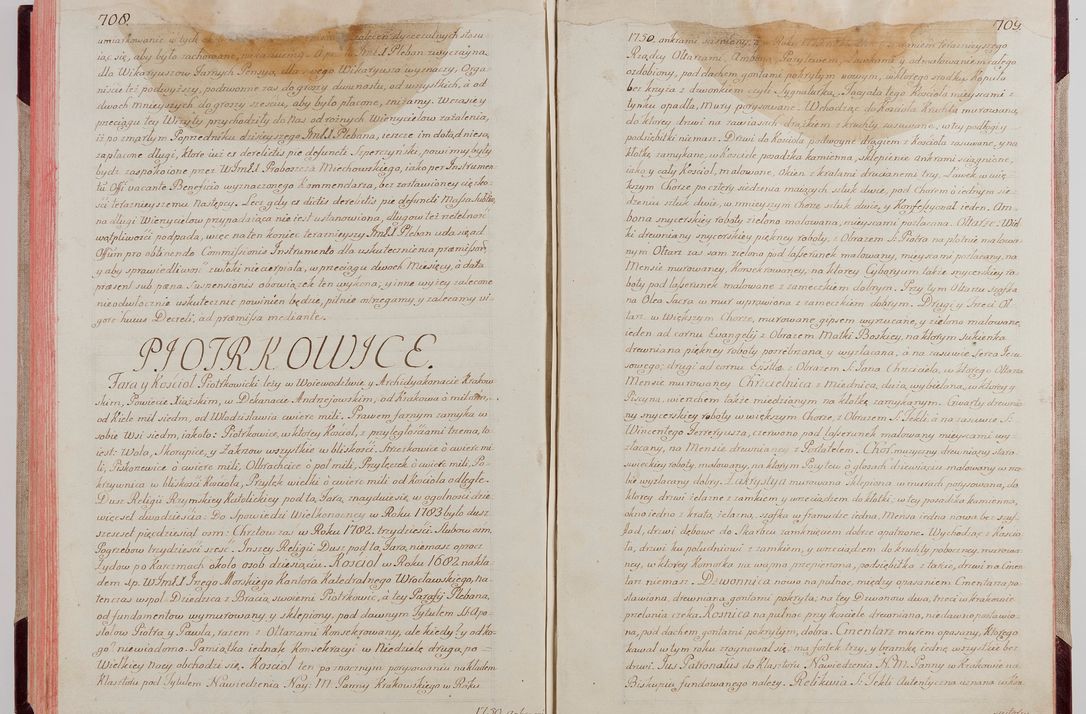 708.
umiarkowanie w tych
iąc się, aby było zachowane, nakazuiemy. Pleban zwyczayną
dla Wikaryuszów Farnych Pensyą, dla swego Wikaryusza wyznaczy, Orga-
niście też podwyższy, podzwonne zas do groszy dwunastu, od wszystkich, a od
dwoch mnieyszych do groszy szesciu, aby było płacone, zniżamy. W czasie y
przeciągu tey Wizyty przychodziły do Nas od rożnych Wierzycielow zażalenia,
iż po zmarłym Poprzedniku dzisieyszego Jmć X Plebana, ieszcze im dotąd nie są
zapłacone długi, ktore iuż ex derelictis pie defuncti Szperczyński, powinny były
bydź zaspokoione przez WJmć X Proboszcza Miechowskiego, iako per Instrumen-
tu Offi vacante Beneficio wyznaczonego Kommendarza, bez zastawioney cięzko-
ści terazniejszemu Następcy. Lecz gdy ex dictis derelictis pie defuncti Massa
na długi Wierzycielow przypadaiąca nie iest ustanowiona, długow też rzetelność
wątpliwości podpada, więc na ten koniec terazniejszy Jmć X Pleban uda się ad
Offium pro obtinendo Commissionis Instrumento dla uskutecznienia præmissor
y aby sprawiedliwość zwłoki nie cierpiała, w przeciągu dwoch Miesięcy, à data
præsent sub pæna Suspensionis obowiązek ten wykona, y inne wyżey zalecone
nieodwłocznie uskutecznić powinien będzie, pilnie ostrzegamy y zalecamy vi-
gore huius Decreti, ad præmissa mediante.
PIOTRKOWICE.
Fara y Kościoł Piotrkowicki leży w Woiewodztwie y Archidyakonacie Krakow
skim, Powiecie Xiążskim, w Dekanacie Andrzejowskim, od Krakowa ò mil
od Kielc mil siedm, od Włodzisławia cwierć mili. Prawem farnym zamyka w
sobie Wsi siedm, iako to: Piotrkowice, w ktorey Kościoł, z przyległościami trzema, to
iest: Wola, Skorupice, y Łaknow wszystkie w bliskości. Strzeszkowice ò cwierć mi-
li, Piskorzewice ò cwierć mili, Ołbrachcice ò poł mili, Przyłęczek ò cwierć mili, Po-
krzywnica w bliskości Kościoła, Przyłęk wielki ò cwierć mili od Kościoła odległe.
Dusz Religii Rzymskiey Katolickiey pod tą Farą, znayduie się, w ogolności dzie-
więćset dwadzieścia: Do Spowiedzi Wielkonocney w Roku 1783 było dusz
szescset pięćdziesiąt osm: Chrztow zaś w Roku 1782. trzydzieści: Slubow osm.
Pogrzebow trzydzieści szesć. Inszey Religii Dusz pod tą Farą niemasz oprocz
Zydow po karczmach około osob dziesięciu. Kościoł w Roku 1682 nakła-
dem sp. WJmć X Jrzego Morskiego Kantora Katedralnego Wrocławskiego, na
tenczas wspoł Dziedzica z Bracią swoiemi Piotrkowic, à tey Parafij Plebana,
od fundamentow wymurowany y sklepiony. pod dawnym Tytułem SS. Apo-
stołow Piotra y Pawła, razem z Ołtarzami Konsekrowany, ale kiedy? y od ko-
go? niewiadomo. Pamiątka iednak konsekracyi w Niedzielę drugą po
Wielkiey Nocy obchodzi się. Kościoł ten po znacznym porysowaniu nakładem
Klasztoru pod Tytułem Nawiedzenia Nay: M. Panny Krakowskiego w Roku
709.
1750. ankrami sciśniony, Roku staraniem terazniejszego
Rządcy Ołtarzami, Amboną, Parytarem, Ławkami y odmalowaniem całego
ozdobiony, pod dachem gontami pokrytym nowym, w ktorego srodku Kopuła
bez krzyża z dwonkiem czyli Sygnaturką. Facyata tego Kościoła mieyscami z
tynku opadła, Mury porysowane. Wchodząc do Kościoła Kruchta murowana,
do ktorey drzwi na zawiasach drążkiem z kruchty zasuwane, w tey podłogi y
podsiebitki niemasz. Drzwi do Kościoła podwoyne drągiem z Kościoła zasuwane, y na
kłotkę zamykane, w kościele posadzka kamienna, sklepienie ankrami sciągnione,
iako y cały Kościoł, malowane, Okien z kratami drucianemi trzy. Ławek w więk-
szym Chorze po cztery siedzenia maiących sztuk dwie, pod Chorem ò iednym sie-
dzeniu sztuk dwie, w mnieyszym Chorze sztuk dwie, y Konfessyonał ieden. Am-
bona snycerskiey roboty zielono malowana, mieyscami pozłacana. Ołtarze: Wiel-
ki drewniany snycerskiey piękney roboty, z Obrazem S. Piotra na płotnie malowa-
nym Ołtarz zas sam zielono pod laserunek malowany, mieyscami pozłacany, na
Mensie murowaney, Konsekrowaney, na ktorey Cyboryum także snycerskiey ro-
boty pod laserunek malowane z zameczkiem dobrym. Przy tym Ołtarzu szafka
na Olea Sacra w mur wprawiona z zameczkiem dobrym. Drugi y Trzeci Oł-
tarz w Większym Chorze, murowane gipsem wyrzucane, y zielono malowane,
ieden ad cornu Evangelij z Obrazem Matki Boskiey, na ktorym sukienka
drewniana piękney roboty posrebrzana y wyzłacana, a na zasuwie Serca Jezu
sowego; drugi ad cornu Epistolæ z Obrazem S. Jana Chrzciciela, w ktorego Ołtarza
Mensie murowaney Chrzcielnica z miednicą, dużą, wybieloną, w ktorey y
Piscyna, wierzchem także miedzianym na kłotkę zamykanym. Czwarty drewnia-
ny snycerskiey roboty w większym Chorze, z Obrazem S. Tekli, a na zasuwie S.
Wincentego Ferreryusza, czerwono pod laserunek malowany mieyscami wy-
złacany, na Mensie drewnianey z Portatelem. Chor muzyczny drewniany staro-
swieckiey roboty, malowany, na ktorym Pozytew ò głosach dziewiąciu malowany w no-
bie wyzłacany dobry. Zakrystya murowana sklepiona w murach porysowana, do
ktorey drzwi żelazne z zamkiem y wrzeciądzem do kłotki, w tey posadzka kamienna,
okno iedno z kratą żelazną, szafka w framudze iedna, Mensa iedna nowa bez szuf-
lad, drzwi dębowe do Skarbcu zamknięciem dobrze opatrzone. Wychodząc z Kościo-
ła, drzwi ku południowi z zamkiem, y wrzeciądzem do kruchty poboczney, murowa-
ney, w ktorey Komorka na wapno przepierzona, podsiebitka z tarcic, drzwi na Cmen-
tarz niemasz. Dzwonnica nowo na pułnoc, między opasaniem Cmentarza po-
stawiona, drewniana gontami pokryta, na tey Dzwonow dwa, trzeci w krakowie
przelania czeka. Kosnica na pułnoc przy kościele drewniana, niedawno postawio-
na, pod dachem gontami pokrytym, dobra. Cmentarz murem opasany, ktorego
kawał w tym roku zruynował się, ma fortek trzy, y bramkę iednę, wszędzie bez
drzwi. Jus Patronatus do Klasztoru Nawiedzenia N. M. Panny w Krakowie na
Biskupiu fundowanego należy. Relikwia S. Tekli Autentyczna uznana w Kra-